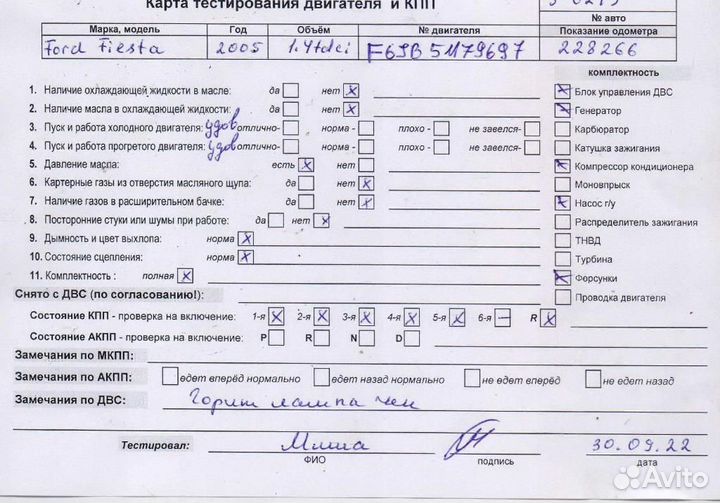 Карта тестирования двигателя и КПП
№ авто
Марка, модель Год Объём № двигателя Показание одометра
Ford Fiesta 2005 1.4tdci F6JB 5M79697 228266
комплектность
1. Наличие охлаждающей жидкости в масле: да нет X
Блок управления ДВС
2. Наличие масла в охлаждающей жидкости: да нет X
Генератор
3. Пуск и работа холодного двигателя: удов отлично- норма - плохо - не завелся-
Карбюратор
4. Пуск и работа прогретого двигателя: удов отлично- норма - плохо - не завелся-
Катушка зажигания
5. Давление масла: есть X нет
Компрессор кондиционера
6. Картерные газы из отверстия масляного щупа: да нет X
Моновпрыск
7. Наличие газов в расширительном бачке: да нет X
Насос г/у
8. Посторонние стуки или шумы при работе: да нет X
Распределитель зажигания
9. Дымность и цвет выхлопа: норма X
ТНВД
10. Состояние сцепления: норма X
Турбина
11. Комплектность : полная X
Форсунки
Снято с ДВС (по согласованию!):
Проводка двигателя
Состояние КПП - проверка на включение: 1-я X 2-я X 3-я X 4-я X 5-я X 6-я — R X
Состояние АКПП - проверка на включение: P R N D
Замечания по МКПП:
Замечания по АКПП: едет вперёд нормально едет назад нормально не едет вперёд не едет назад
Замечания по ДВС: Горит лампа чек
Тестировал: Миша 30.09.22
ФИО подпись дата
Avito